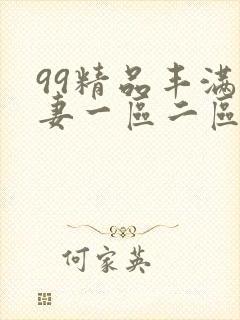 99精品丰满
妻一區二區
何家英